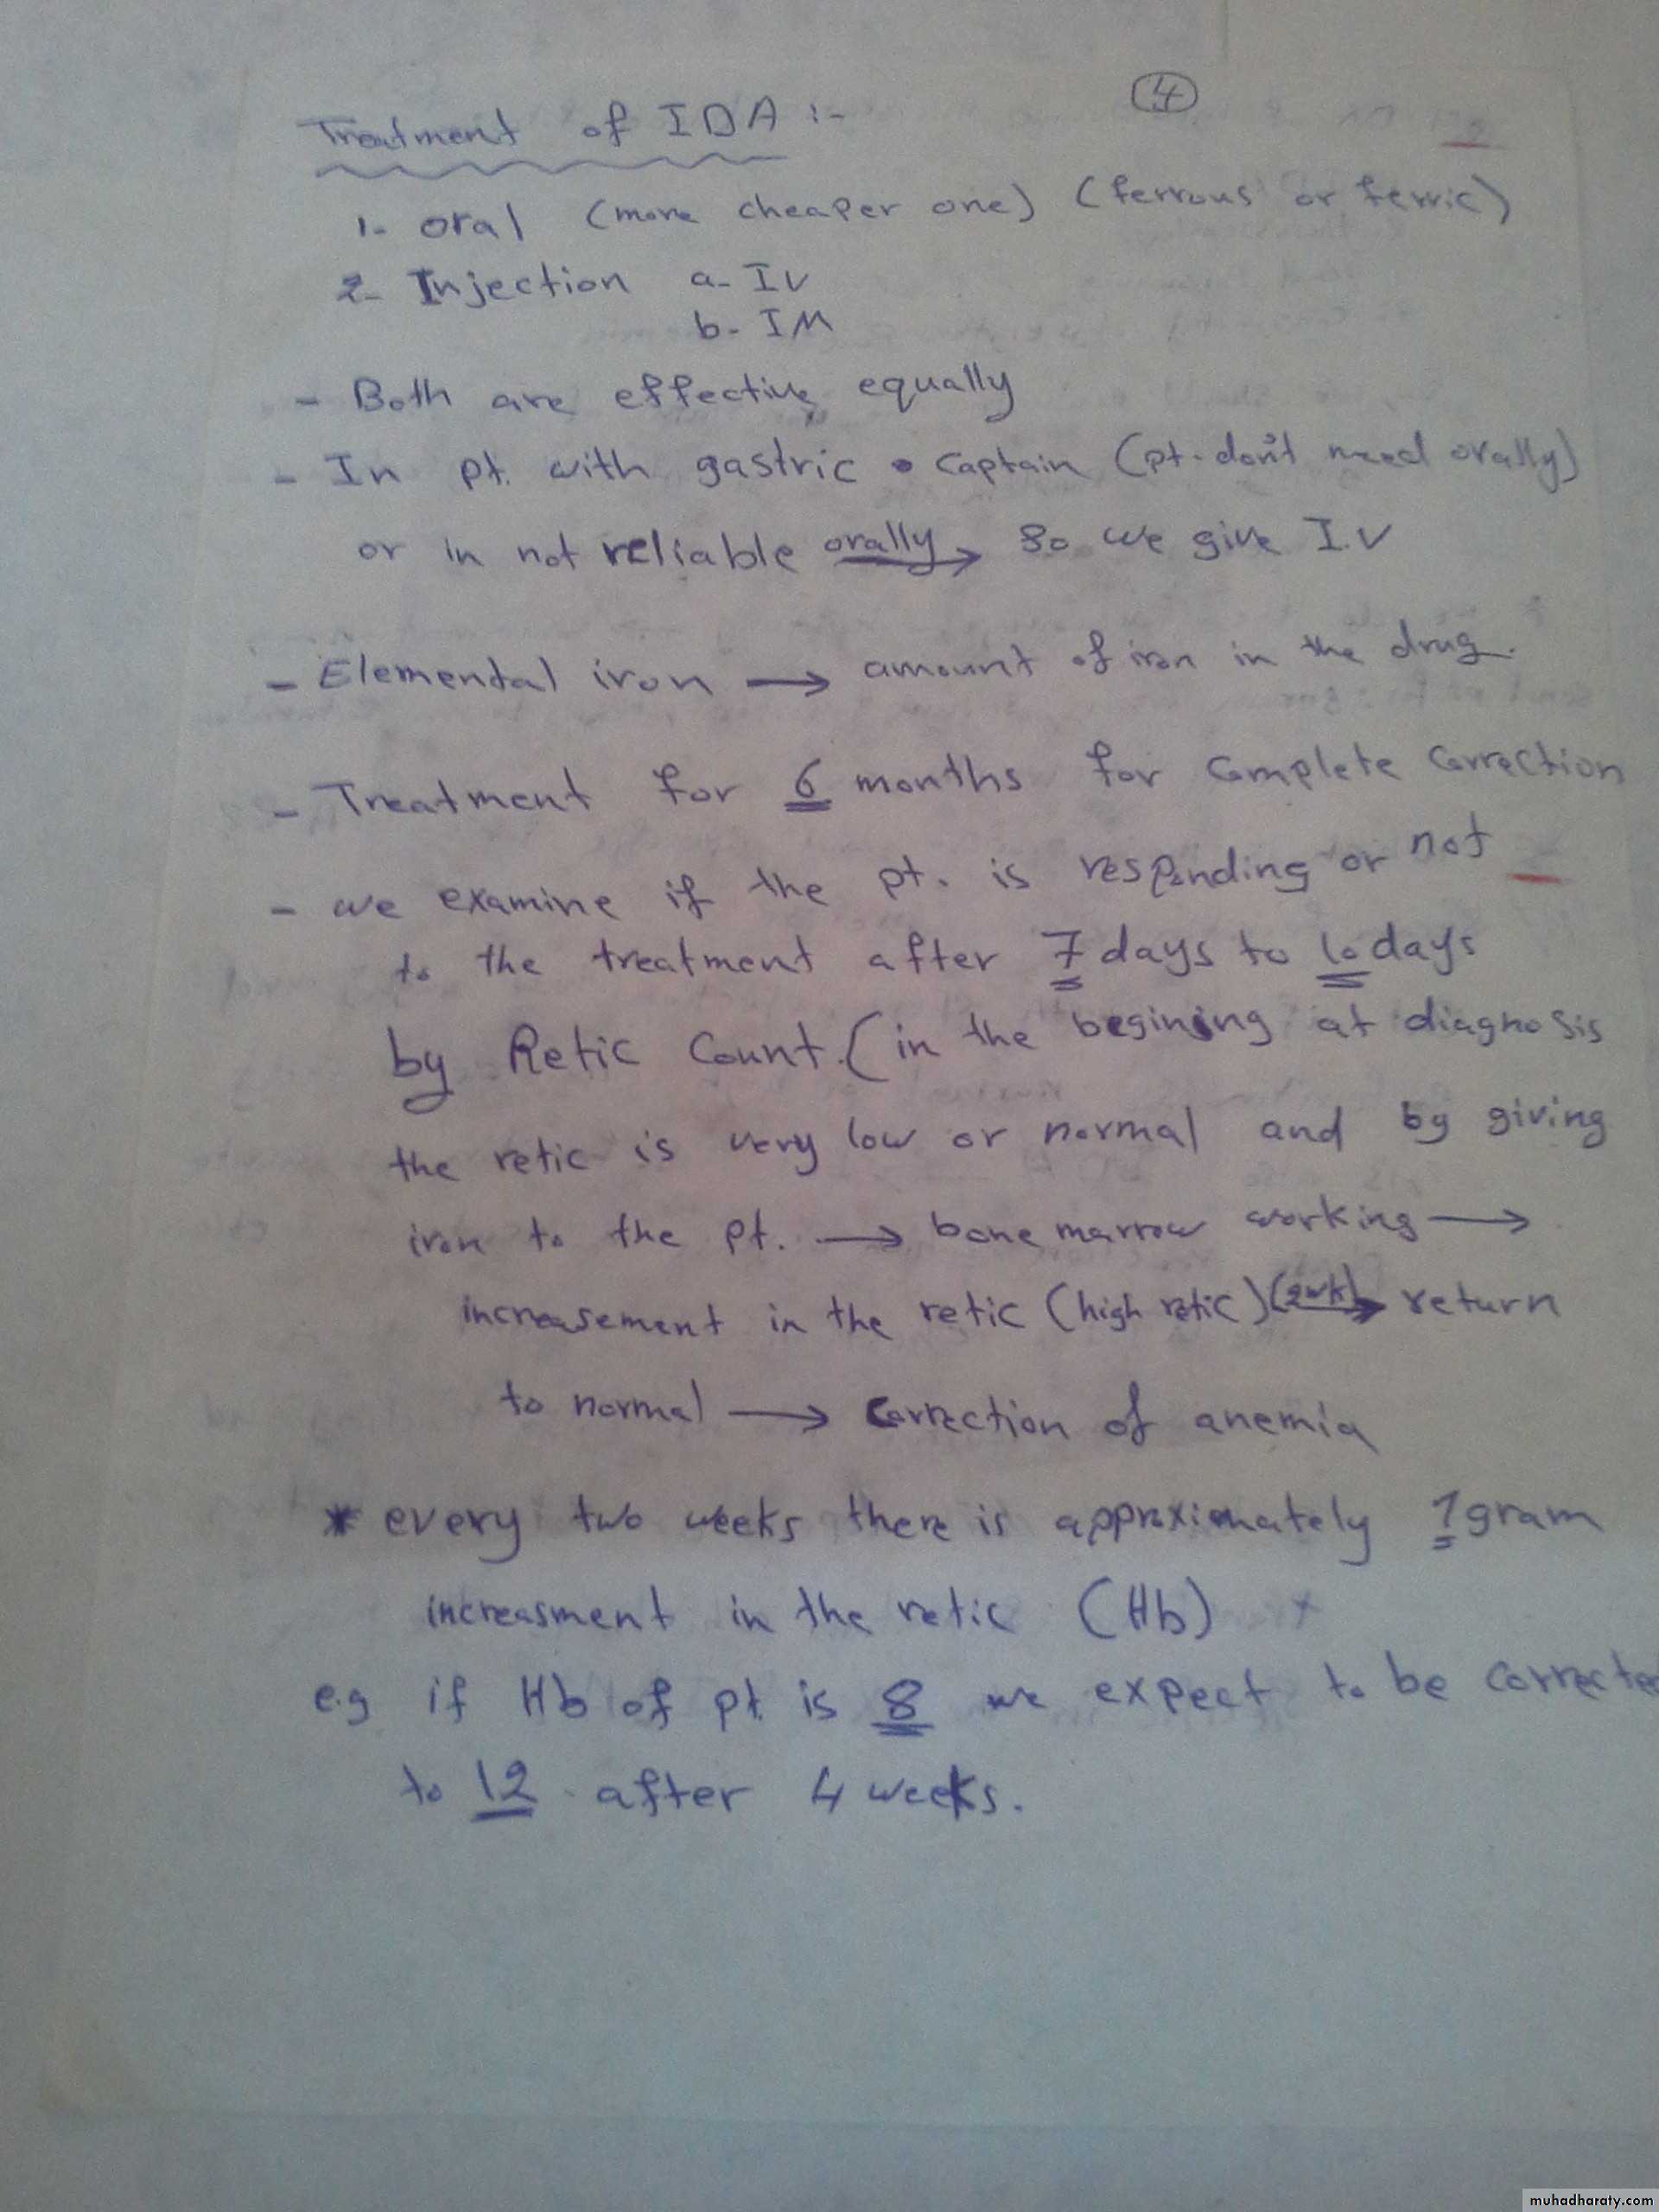 4
Treatment of IDA :-
1- oral (more cheaper one) (ferrous or ferric)
2- Injection a- IV
b- IM
- Both are effective equally
- In pt. with gastric captain (pt. don't need orally)
or in not reliable orally → So we give I.V
- Elemental iron → amount of iron in the drug.
- Treatment for 6 months for complete correction
- we examine if the pt. is responding or not
to the treatment after 7 days to 10 days
by Retic Count. (in the begining at diagnosis
the retic is very low or normal and by giving
iron to the pt. → bone marrow working →
increasement in the retic (high retic) (2wk) → return
to normal → correction of anemia
* every two weeks there is approximately 1 gram
increasment in the retic (Hb)
e.g if Hb of pt is 8 we expect to be corrected
to 12 after 4 weeks.
muhadharaty.com